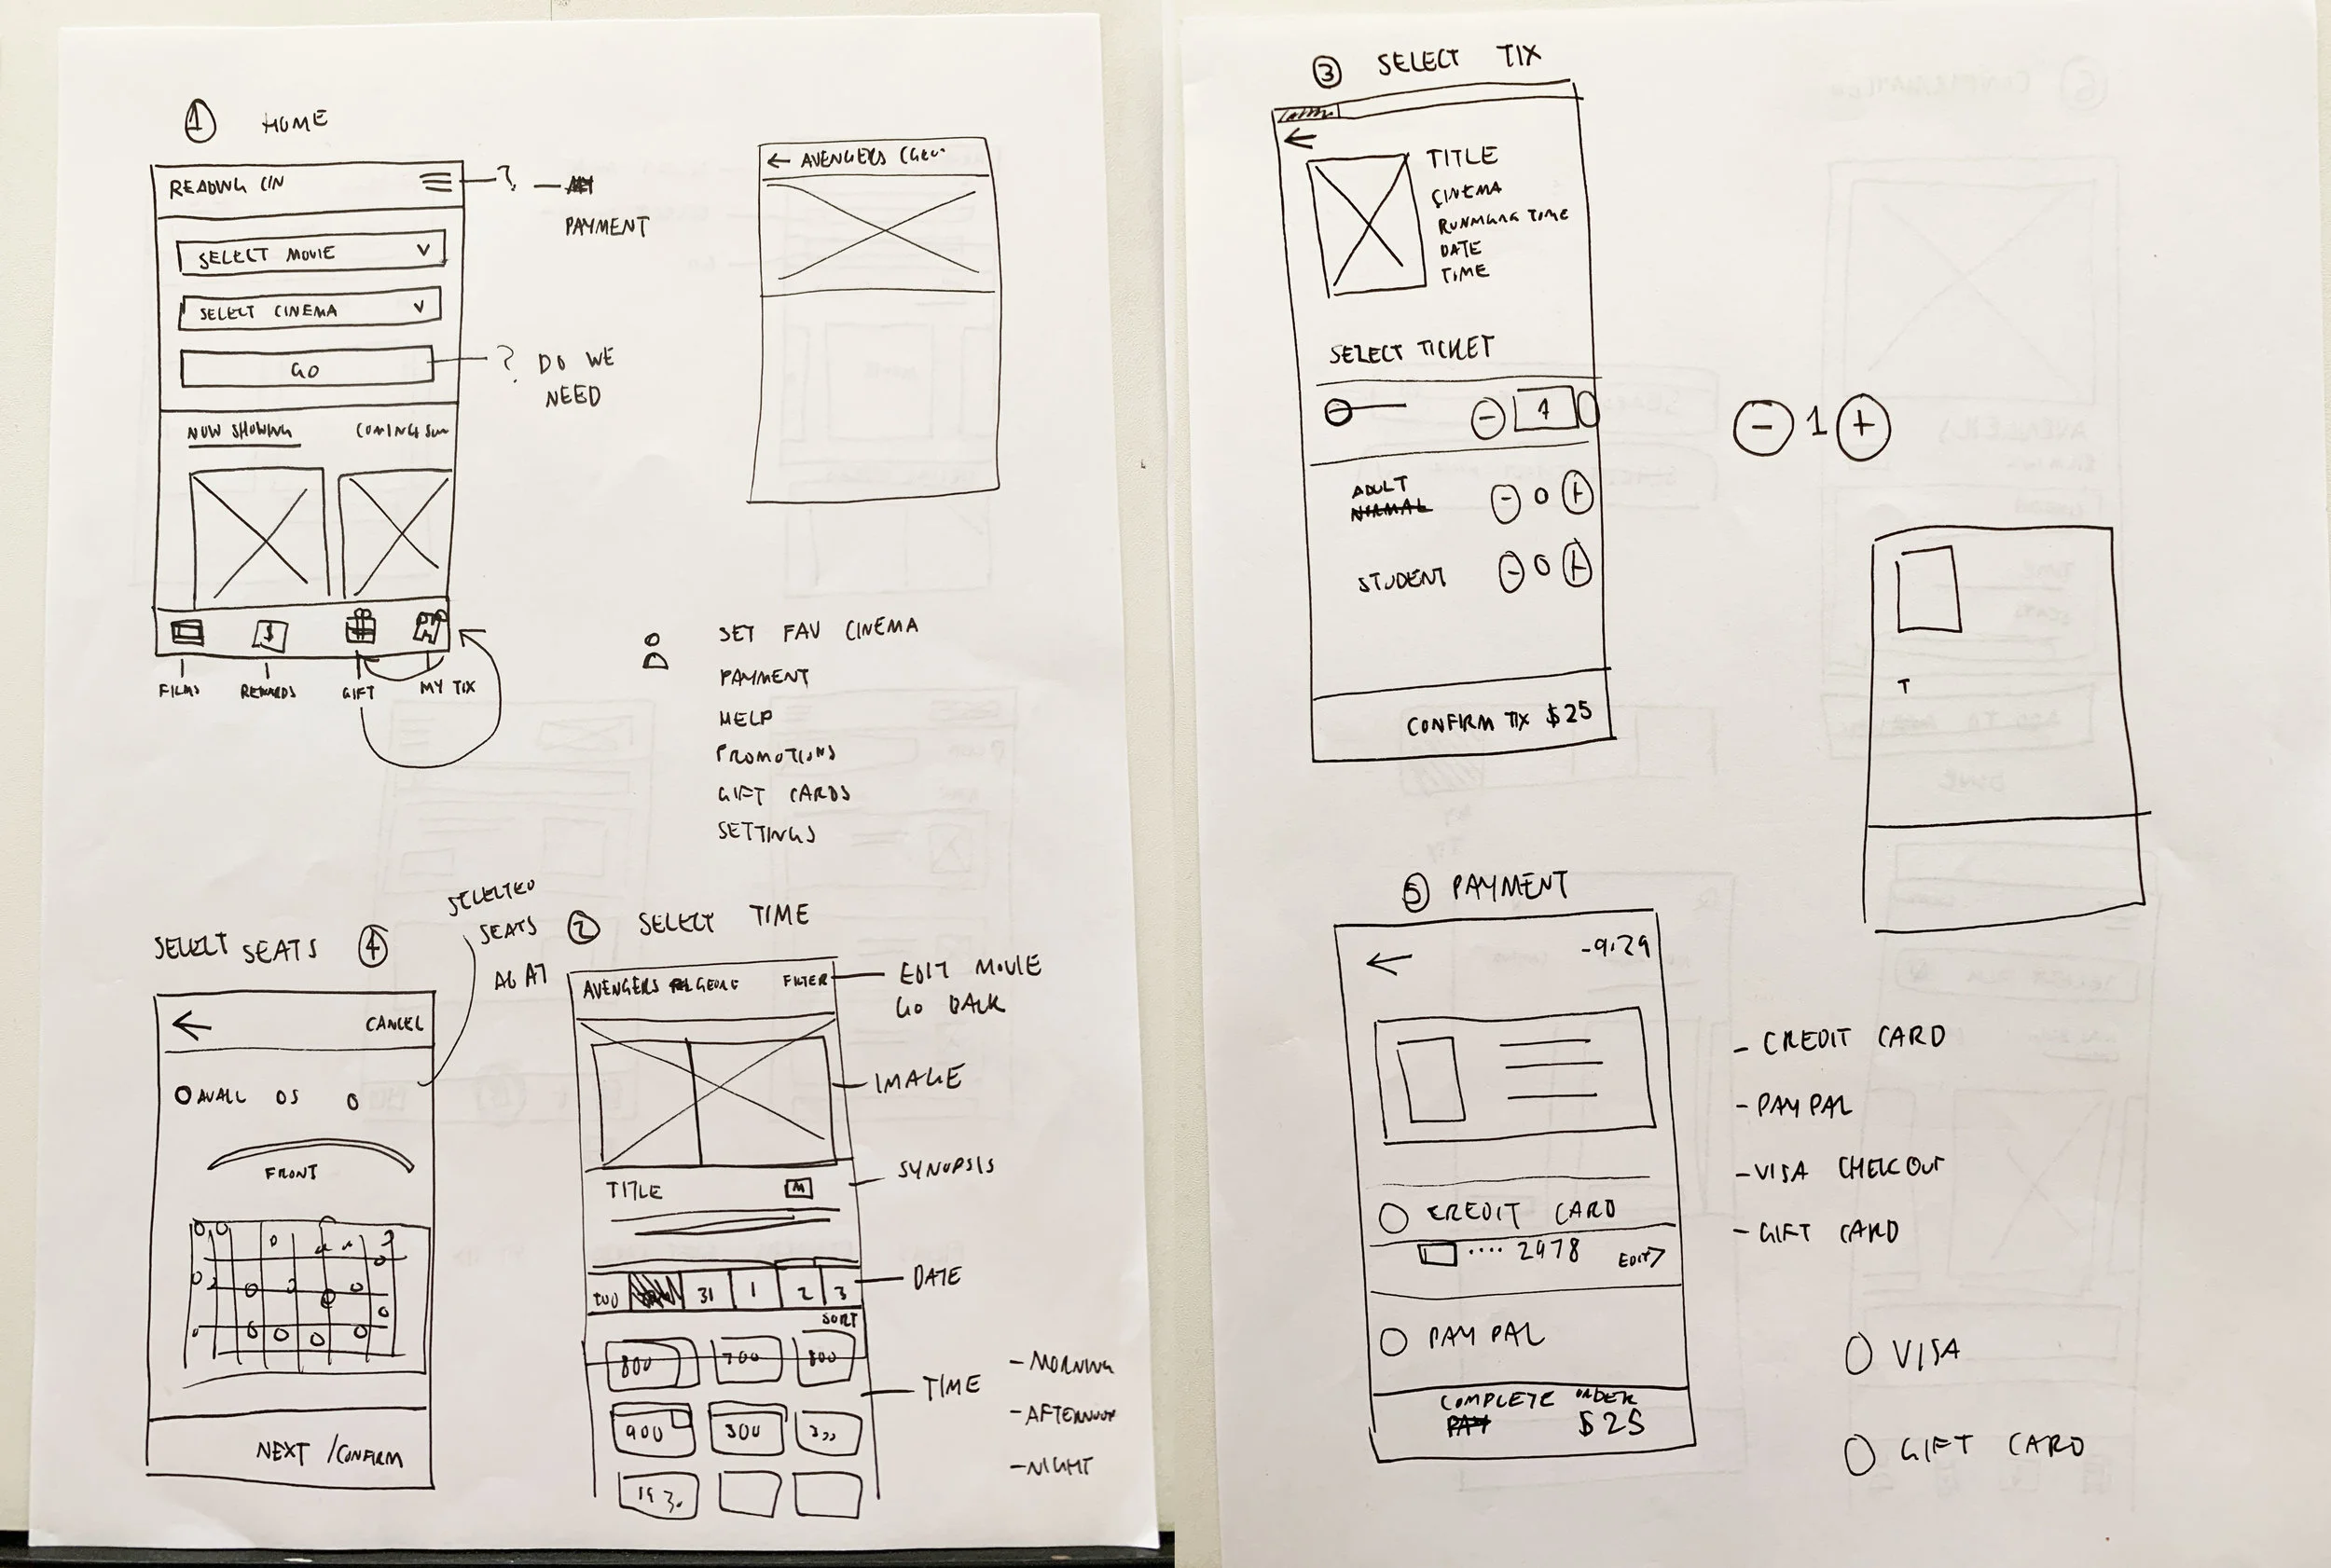 ① HOME
READING CIN
?
PAYMENT
SELECT MOVIE V
SELECT CINEMA V
GO
? DO WE
NEED
NOW SHOWING
COMING SUN
$
FILMS
REWARDS
GIFT
MY TIX
← AVENGERS
SET FAV CINEMA
PAYMENT
HELP
PROMOTIONS
GIFT CARDS
SETTINGS
SELECT SEATS ④
SELECTED
SEATS
A6 A7
← CANCEL
AVAIL
FRONT
NEXT /CONFIRM
② SELECT TIME
AVENGERS
FILTER
EDIT MOVIE
GO BACK
IMAGE
TITLE M
SYNOPSIS
31 1 2 3
DATE
SORT
800 700 800
900 300
193.
TIME
- MORNING
- AFTERNOON
- NIGHT
③ SELECT TIX
←
TITLE
CINEMA
RUNNING TIME
DATE
TIME
SELECT TICKET
- 1
- 1 +
ADULT
NORMAL
- 0 +
STUDENT - 0 +
CONFIRM TIX $25
T
⑤ PAYMENT
← -9:29
CREDIT CARD
.... 2978 EDIT>
PAYPAL
COMPLETE ORDER
PAY $25
- CREDIT CARD
- PAYPAL
- VISA CHECKOUT
- GIFT CARD
VISA
GIFT CARD